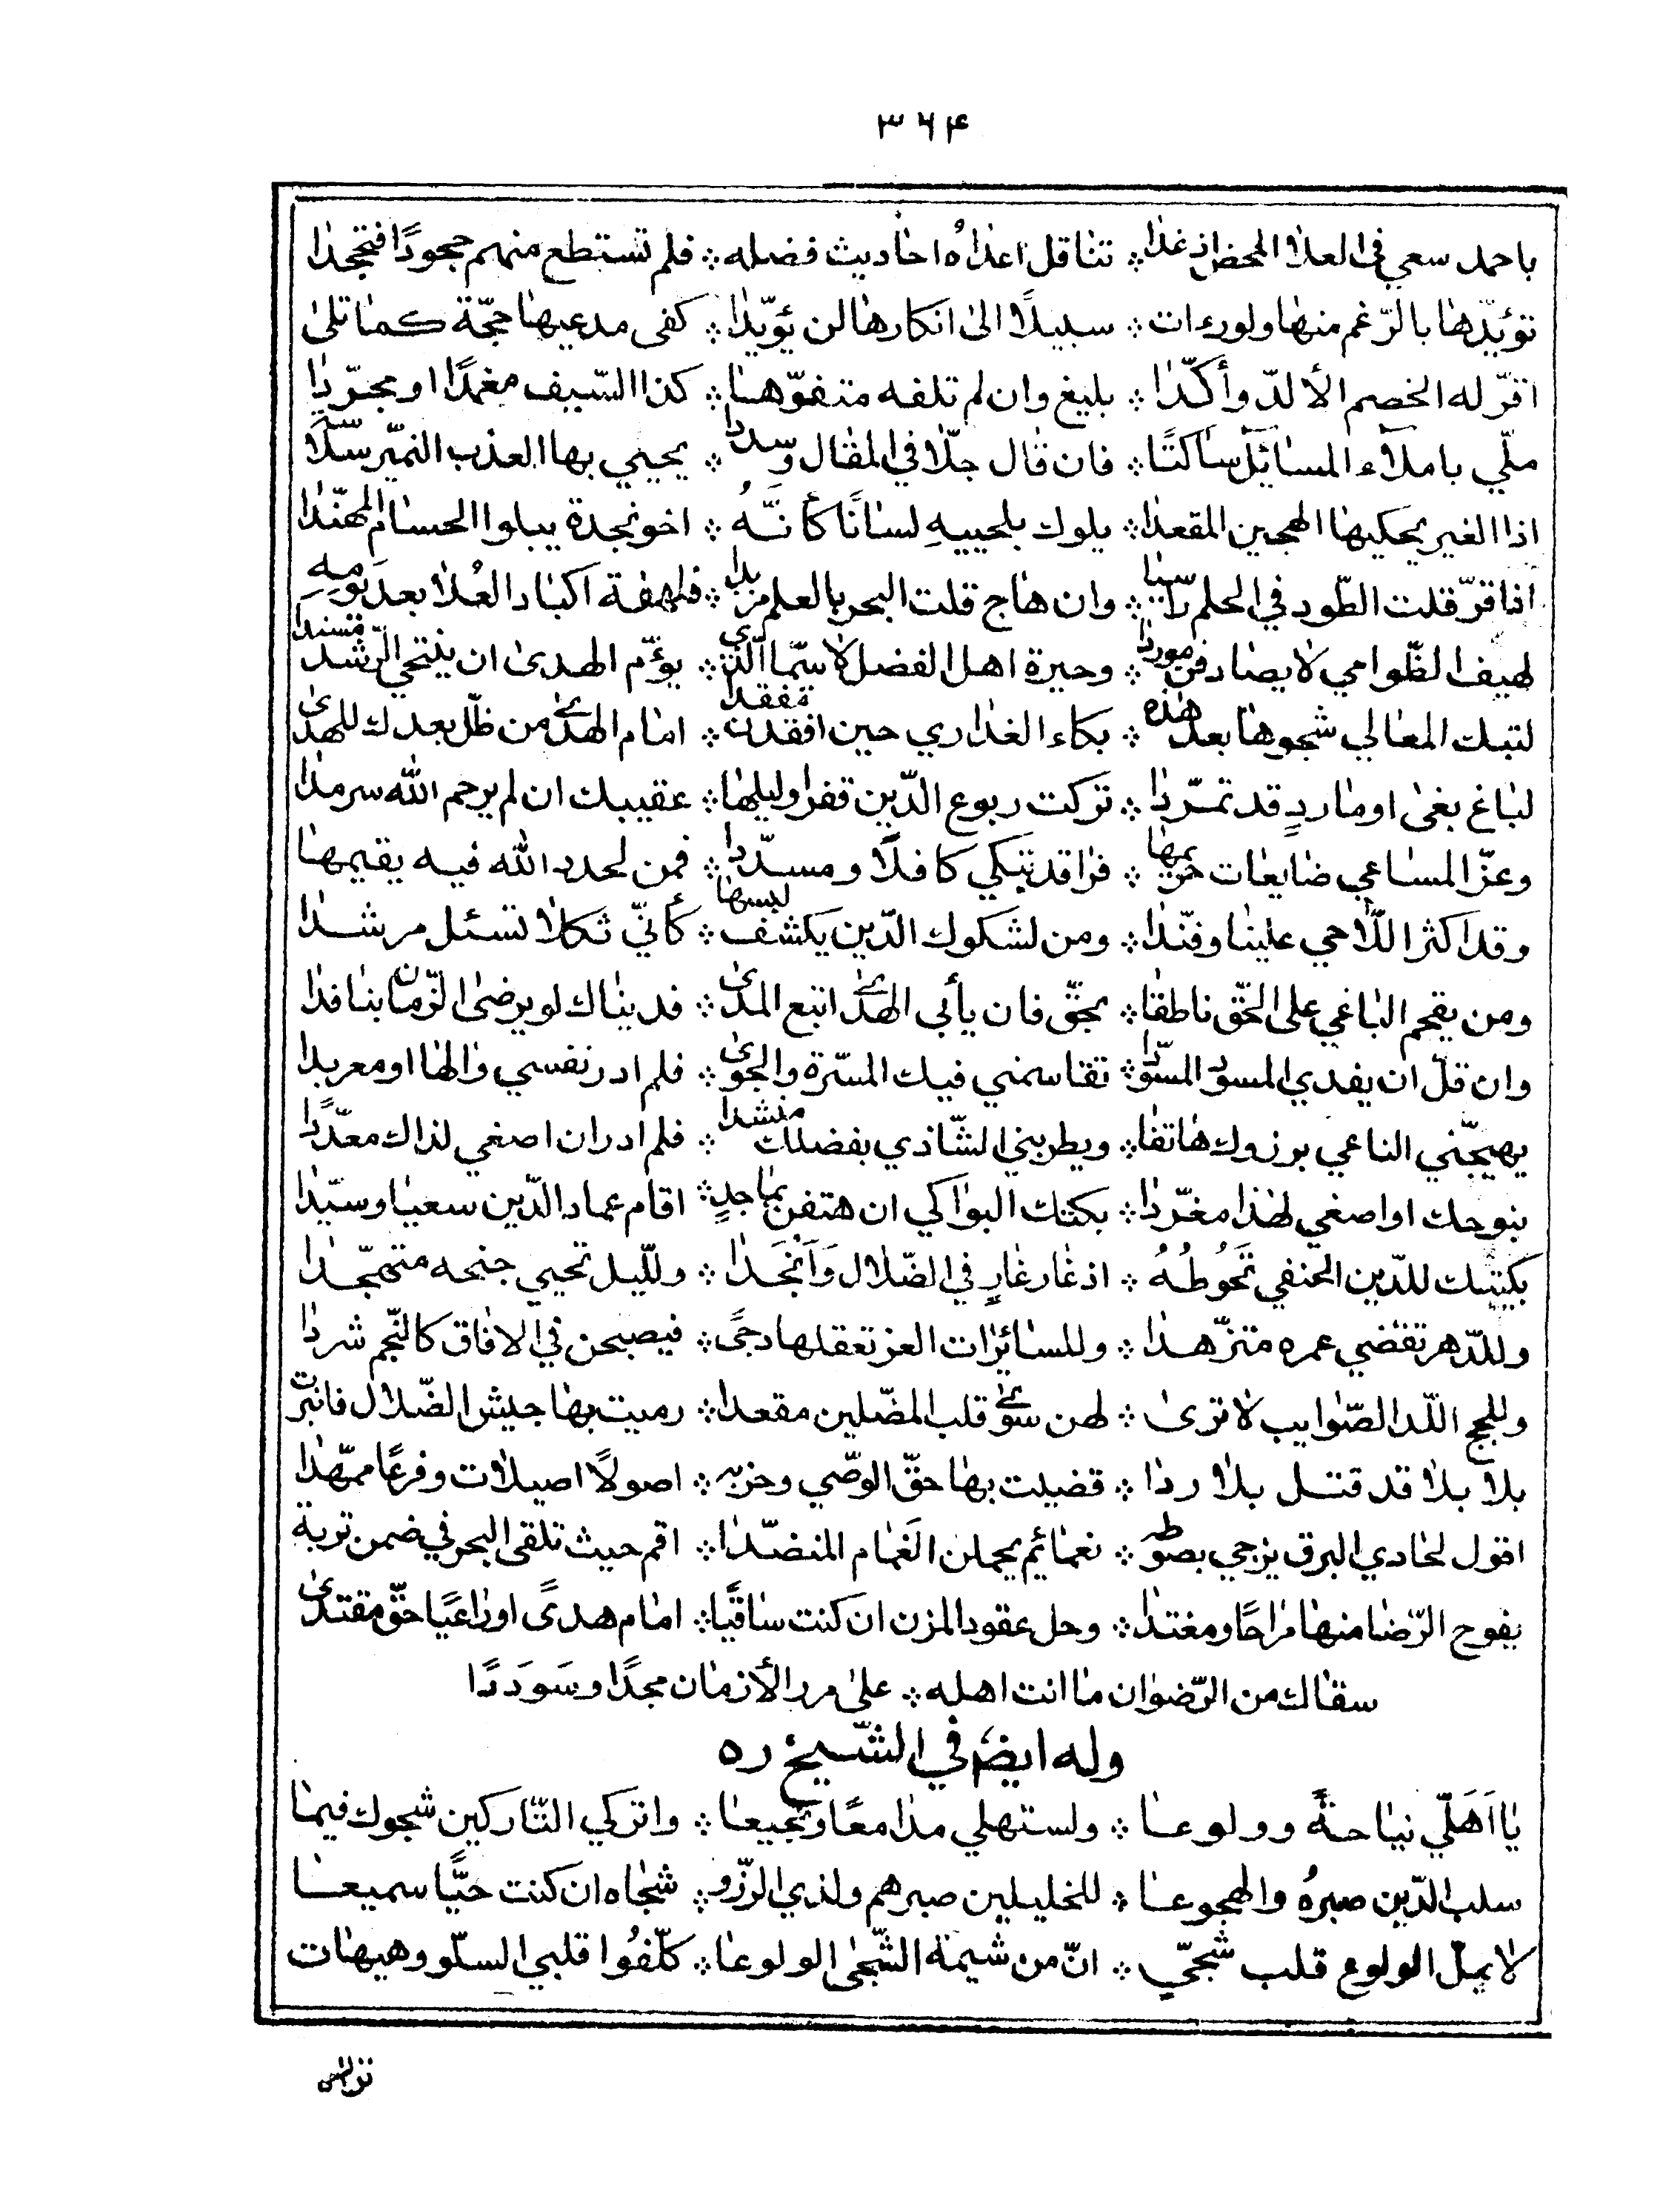 ٣٦٤
باحمد سعي في العلا المحض اذ غدا ⁘ تناقل اعداه احاديث فضله ⁘ فلم تستطع منهم جحودًا فتجحدا
تؤيّدها بالرّغم منها ولورءات ⁘ سبيلًا الى انكارها لن يؤيّدا ⁘ كفى مدعيها حجّة كمّا تلى
اقرّ له الخصم الألدّ وأكّدا ⁘ بليغ وان لم تلفه متفوّها ⁘ كذا السّيف مغمدًا او مجرّدا
ملّي باملآء المسائل ساكتًا ⁘ فان قال جلّا في المقال وسددا ⁘ يحيي بها العذب النمّير سلّاسة
اذا الغير يحكيها الهجين المقعدا ⁘ يلوك بلحييهِ لسانًا كأنّهُ ⁘ اخو نجدة يبلوا الحسام المهنّدا
اذا قرّ قلت الطّود في الحلم راسيا ⁘ وان هاج قلت البحر بالعلم مزبدا ⁘ فلهفة اكباد العُلا بعد نومهِ
لهيف الظّوامي لا يصادفن موردا ⁘ وحيرة اهل الفضل لا سيّما الّذى ⁘ يؤمّ الهدى ان ينتحي الرّشد مسندا
لتبك المعالي شجوها بعد هذه ⁘ بكاء العذاري حين افقدن مفقدا ⁘ امام الهدى من ظلّ بعدك للهدى
لباغ بغى او ماردٍ قد تمرّدا ⁘ تركت ربوع الدّين قفرا وليلها ⁘ عقيبك ان لم يرحم الله سرمدا
وعزّ المساعي ضايعات حريمها ⁘ فراقد تبكي كافلًا ومسدّدا ⁘ فمن لحدد الله فيه يقيمها
وقد اكثر اللّاحي علينا وفنّدا ⁘ ومن لشكوك الدّين يكشف لبسها ⁘ كأنّي ثكلا تسئل مرشدا
ومن يقحم الباغي على الحقّ ناطقا ⁘ بحقّ فان يأبى الهدى اتبع المدى ⁘ فديناك لو يرضى الزّمان بنا فدا
وان قلّ ان يفدي المسود المسوّدا ⁘ تقاسمني فيك المسرّة والجوى ⁘ فلم ادر نفسي والها او معربدا
يهيجّني الناعي برزوك هاتفا ⁘ ويطربني الشّاذي بفضلك منشدا ⁘ فلم ادر ان اصغي لذاك معدّدًا
بنوحك او اصغي لهذا مغرّدا ⁘ بكتك البواكي ان هتفن بماجدٍ ⁘ اقام عماد الدّين سعيا وسيّدا
بكيتك للدّين الحنفي تحُوطُهُ ⁘ اذ غار غارٍ في الضّلال وَاَنْجَدا ⁘ ولليّل تحيي جنحه متهجّدا
وللدّهر تقضي عمره متزهّدا ⁘ وللسائرات العز تعقلها دجىً ⁘ فيصبحن في الافاق كالنّجم شردا
وللحج اللّد الصّوايب لا ترى ⁘ لهن سوى قلب المضّلين مقعدا ⁘ رميت بها جيش الضّلال فانبرت
بلا بلا قد قتل بلا ردا ⁘ قضيت بها حقّ الوصّي وحزبه ⁘ اصولًا اصيلات وفرعًا ممهّدا
اقول لحادي البرق يزجي بصوطه ⁘ نعمائم يحملن الغمام المنضّدا ⁘ اقم حيث تلقى البحر في ضمن تربة
يفوح الرّضا منها مراحًا ومغتدا ⁘ وحل عقود المزن ان كنت ساقيًا ⁘ امام هدىً او راعيًا حقّ مقتدى
سقاك من الرّضوان ما انت اهله ⁘ على مرر الأزمان مجدًا وسَودَدًا
وله ايض في الشّيخ ره
يا اَهَلّي نياحةً وولوعا ⁘ ولستهلي مدامعًا ونجيعا ⁘ واتركي التّاركين شجوك فيما
سلب الدّين صبرهُ والهجوعا ⁘ للخليلين صبرهم ولذي الرّزو ⁘ شجاه ان كنت حيًّا سميعا
لا يملّ الولوع قلب شجيّ ⁘ انّ من شيمة الشّجى الولوعا ⁘ كلّفُوا قلبي السلّو وهيهات